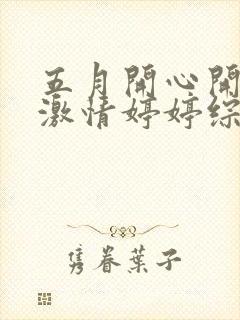 五月開心開
激情婷婷綜
隽眷葉子